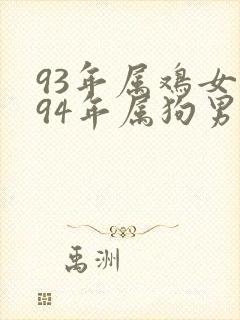 93年属鸡女
94年属狗男
禹洲